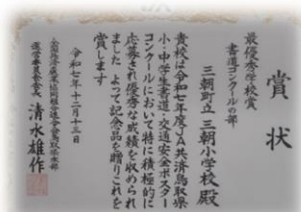 賞状
最優秀学校賞
書道コンクールの部
三朝町立三朝小学校殿
貴校は令和七年度JA共済鳥取県
小・中学生書道・交通安全ポスター
コンクールにおいて特に積極的に
応募され優秀な成績を収められ
ました よって記念品を贈りこれを
賞します
令和七年十二月十三日
全国共済農業協同組合連合会鳥取県本部
運営委員会会長 清水雄作